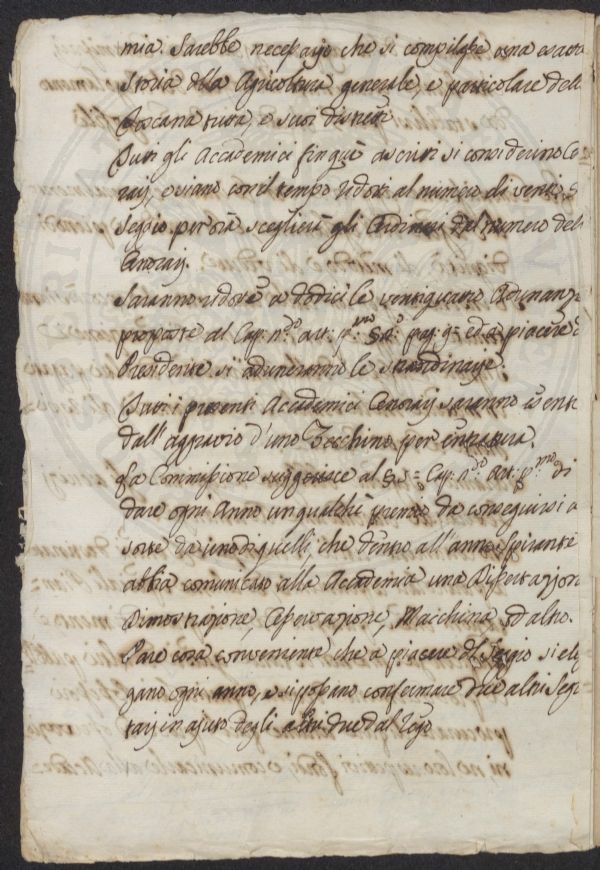 mia. Sarebbe necessario che si compilasse una esatta
Storia della Agricoltura generale, e particolare dell
Toscana tutta, e suoi distretti.
Tutti gli Accademici finquì ascritti si considerino
rarij, e siano con il tempo ridotti al numero di venti
Seggio perorà sceglierà gli Ordinarij dal numero dell
Onorarij.
Saranno ridotte a dodici le ventiquattro Adunanze
proposte al Cap: n.º art: p.mo pag: 9= ed a piacere
Presidente si aduneranno le straordinarie.
Tutti i presenti Accademici Onorarij saranno esenti
dall' aggravio d'uno Zecchino per entratura.
La Commissione suggerisce al §. 5= Cap: n.º Art: p.mo di
dare ogni Anno un qualchè premio da conseguirsi a
sorte da uno di quelli che dentro all' anno spirante
abbia comunicato alla Accademia una Dissertazione
Dimostrazione, Osservazione, Macchina, ed altro.
Pare cosa conveniente che a piacere del Seggio si eleg
gano ogni anno, e si possano confermare due altri Segre
tarij in ajuto degli altri due dal